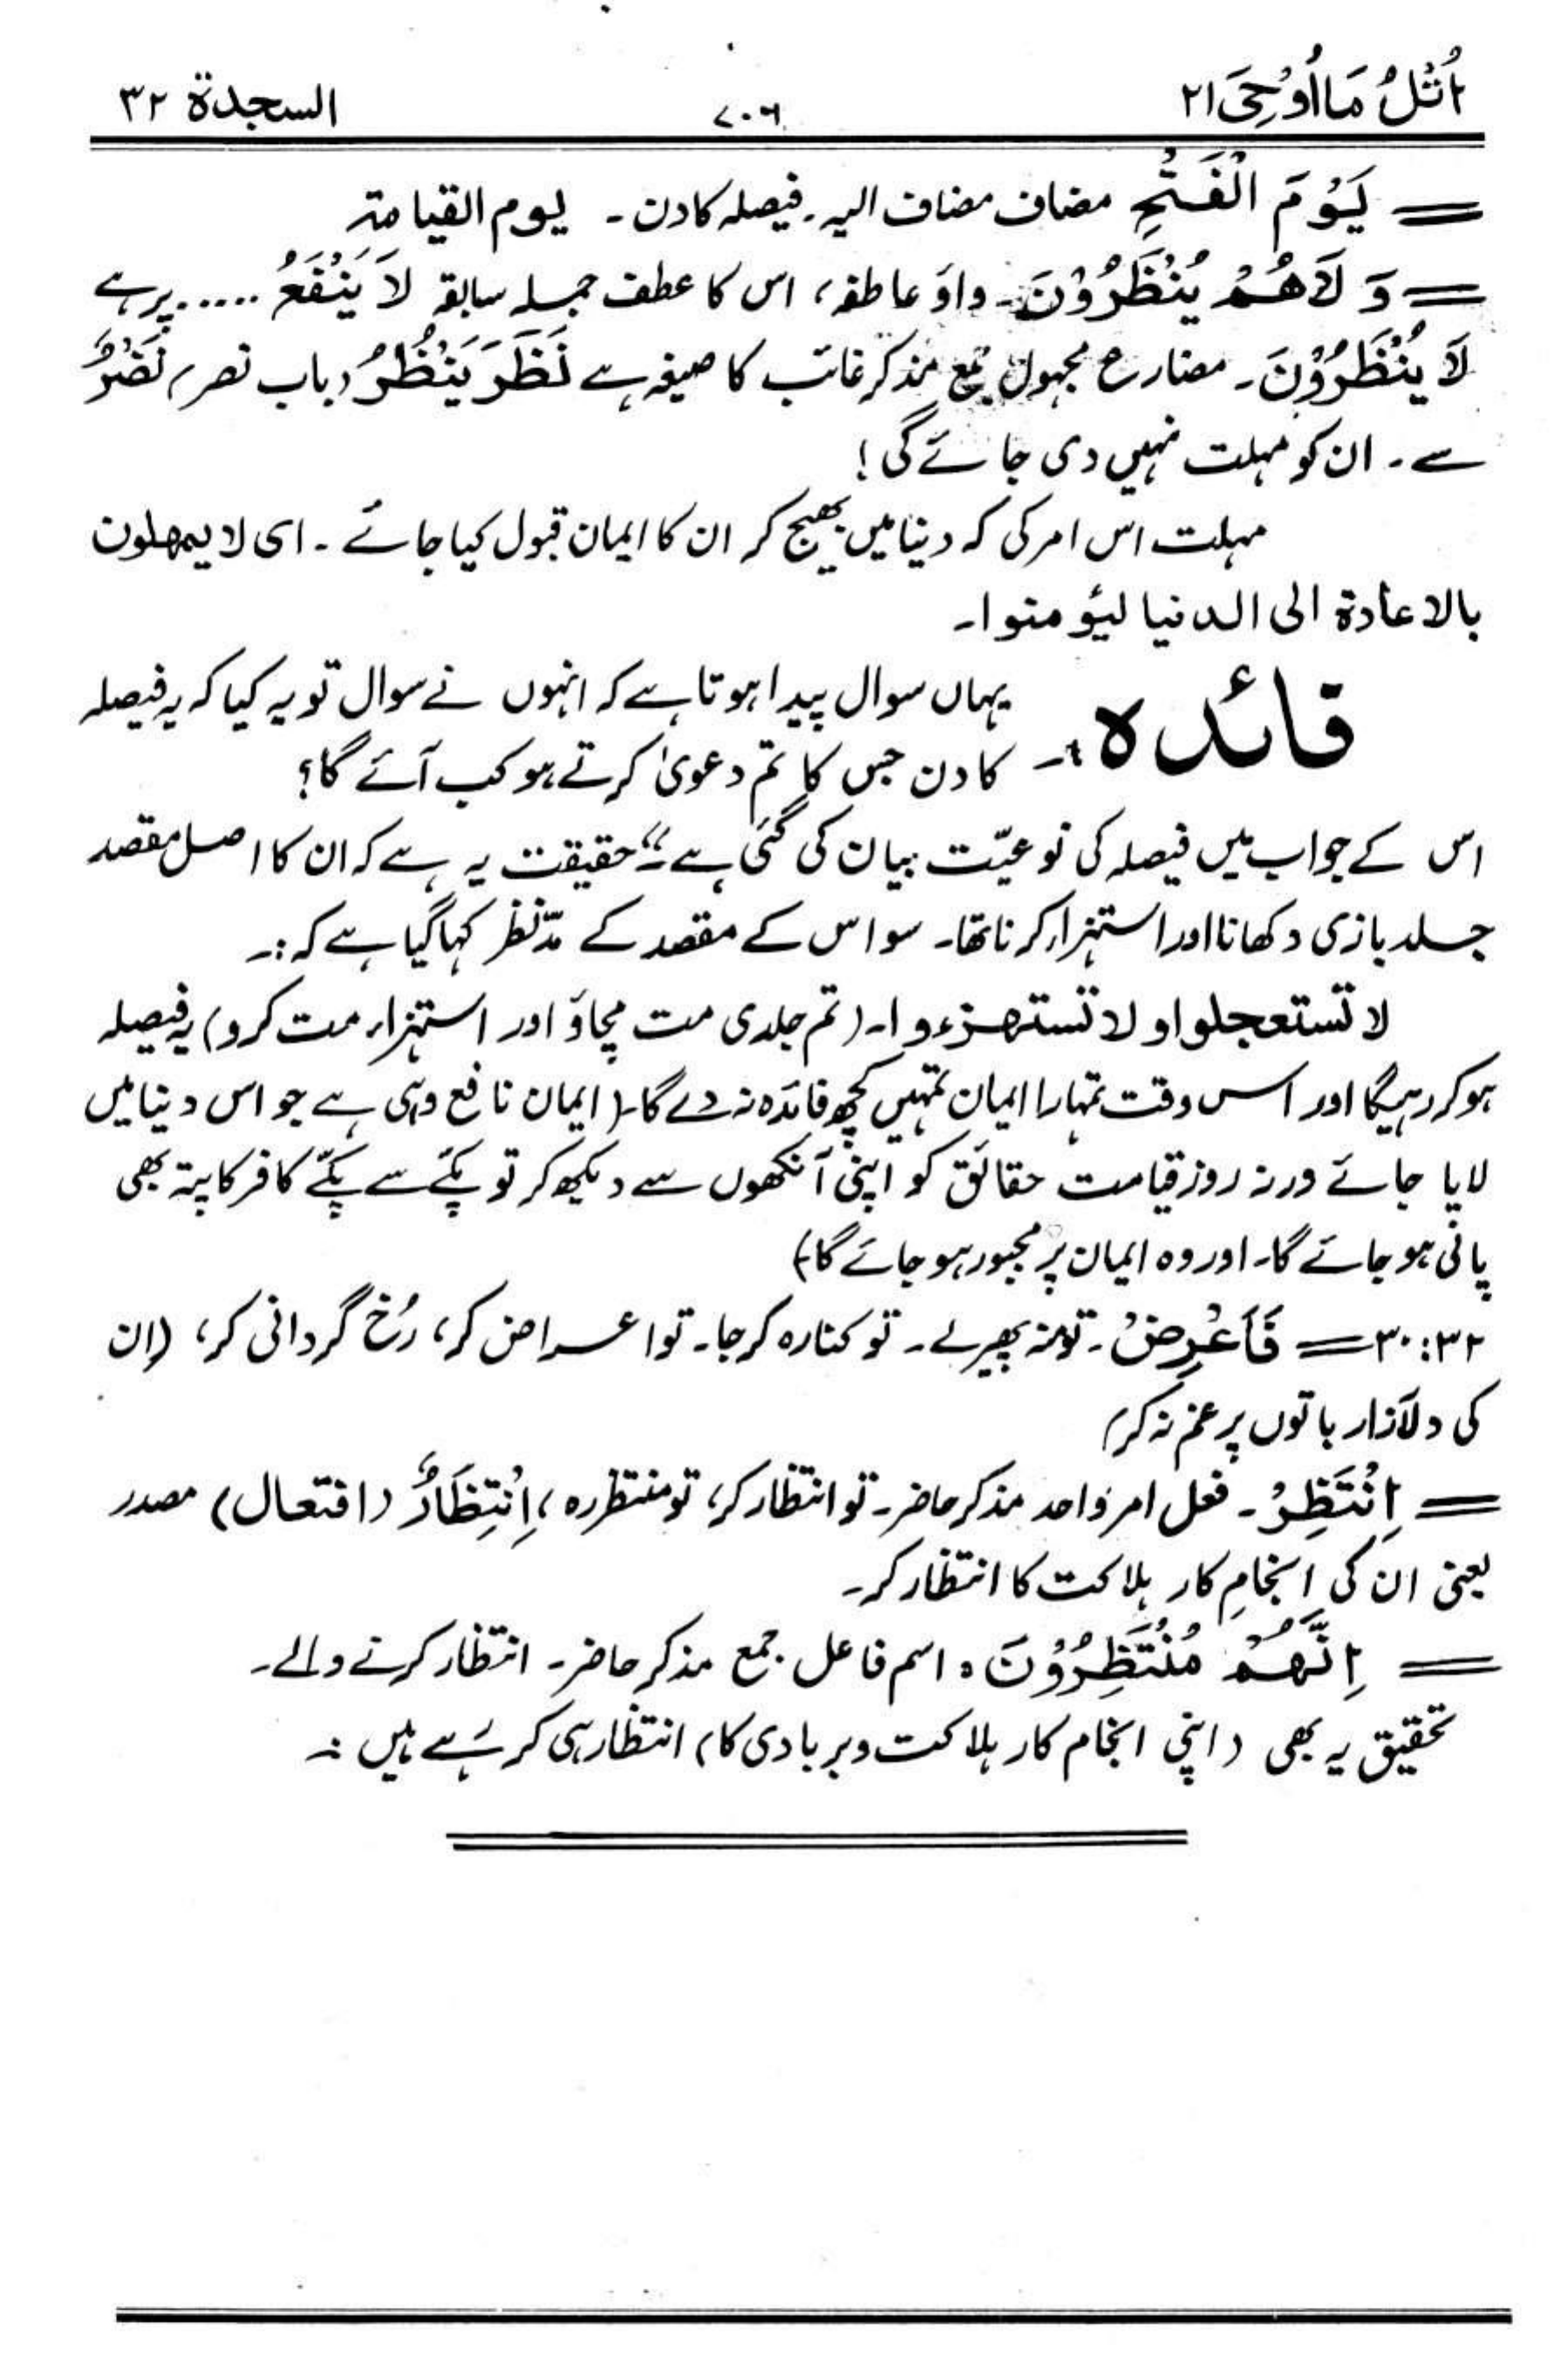 اُتْلُ مَا اُوْحِیَ ۲۱ ۷۰۶ السجدة ۳۲
= یَوْمَ الْفَتْحِ مضاف مضاف الیہ۔ فیصلہ کا دن۔ یوم القیامتہ
= وَ لَا هُمْ یُنْظَرُوْنَ۔ واؤ عاطفہ، اس کا عطف جملہ سابقہ لَا یَنْفَعُ ..... پر ہے
لَا یُنْظَرُوْنَ۔ مضارع مجہول جمع مذکر غائب کا صیغہ ہے نَظَرَ یَنْظُرُ (باب نصر) نَصْرٌ
سے۔ ان کو مہلت نہیں دی جائے گی!
مہلت اس امر کی کہ دنیا میں بھیج کر ان کا ایمان قبول کیا جائے۔ ای لا یمھلون
بالاعادة الی الدنیا لیؤمنوا۔
فائدہ:۔ یہاں سوال پیدا ہوتا ہے کہ انہوں نے سوال تو یہ کیا کہ یہ فیصلہ
کا دن جس کا تم دعویٰ کرتے ہو کب آئے گا؟
اس کے جواب میں فیصلہ کی نوعیّت بیان کی گئی ہے۔“ حقیقت یہ ہے کہ ان کا اصل مقصد
جلد بازی دکھانا اور استہزار کرنا تھا۔ سو اس کے مقصد کے مدّنظر کہا گیا ہے کہ:۔
لا تستعجلوا و لا تستھزءوا۔ (تم جلدی مت مچاؤ اور استہزار مت کرو) یہ فیصلہ
ہو کر رہیگا اور اس وقت تمہارا ایمان تمہیں کچھ فائدہ نہ دے گا۔ (ایمان نافع وہی ہے جو اس دنیا میں
لایا جائے ورنہ روز قیامت حقائق کو اپنی آنکھوں سے دیکھ کر تو پکّے سے پکّے کافر کا پتہ بھی
پانی ہو جائے گا۔ اور وہ ایمان پر مجبور ہو جائے گا)
۳۲:۳۰ = فَاَعْرِضْ۔ تو منہ پھیر لے۔ تو کنارہ کر جا۔ تو اعراض کر، رُخ گردانی کر، (ان
کی دلآزار باتوں پر غم نہ کر)
= اِنْتَظِرْ۔ فعل امر واحد مذکر حاضر۔ تو انتظار کر، تو منتظر رہ، اِنْتِظَارٌ (افتعال) مصدر
یعنی ان کی انجامِ کار ہلاکت کا انتظار کر۔
= اِنَّهُمْ مُنْتَظِرُوْنَ ۰ اسم فاعل جمع مذکر حاضر۔ انتظار کرنے والے۔
تحقیق یہ بھی (اپنی انجام کار ہلاکت و بربادی کا) انتظار ہی کر رہے ہیں :۔